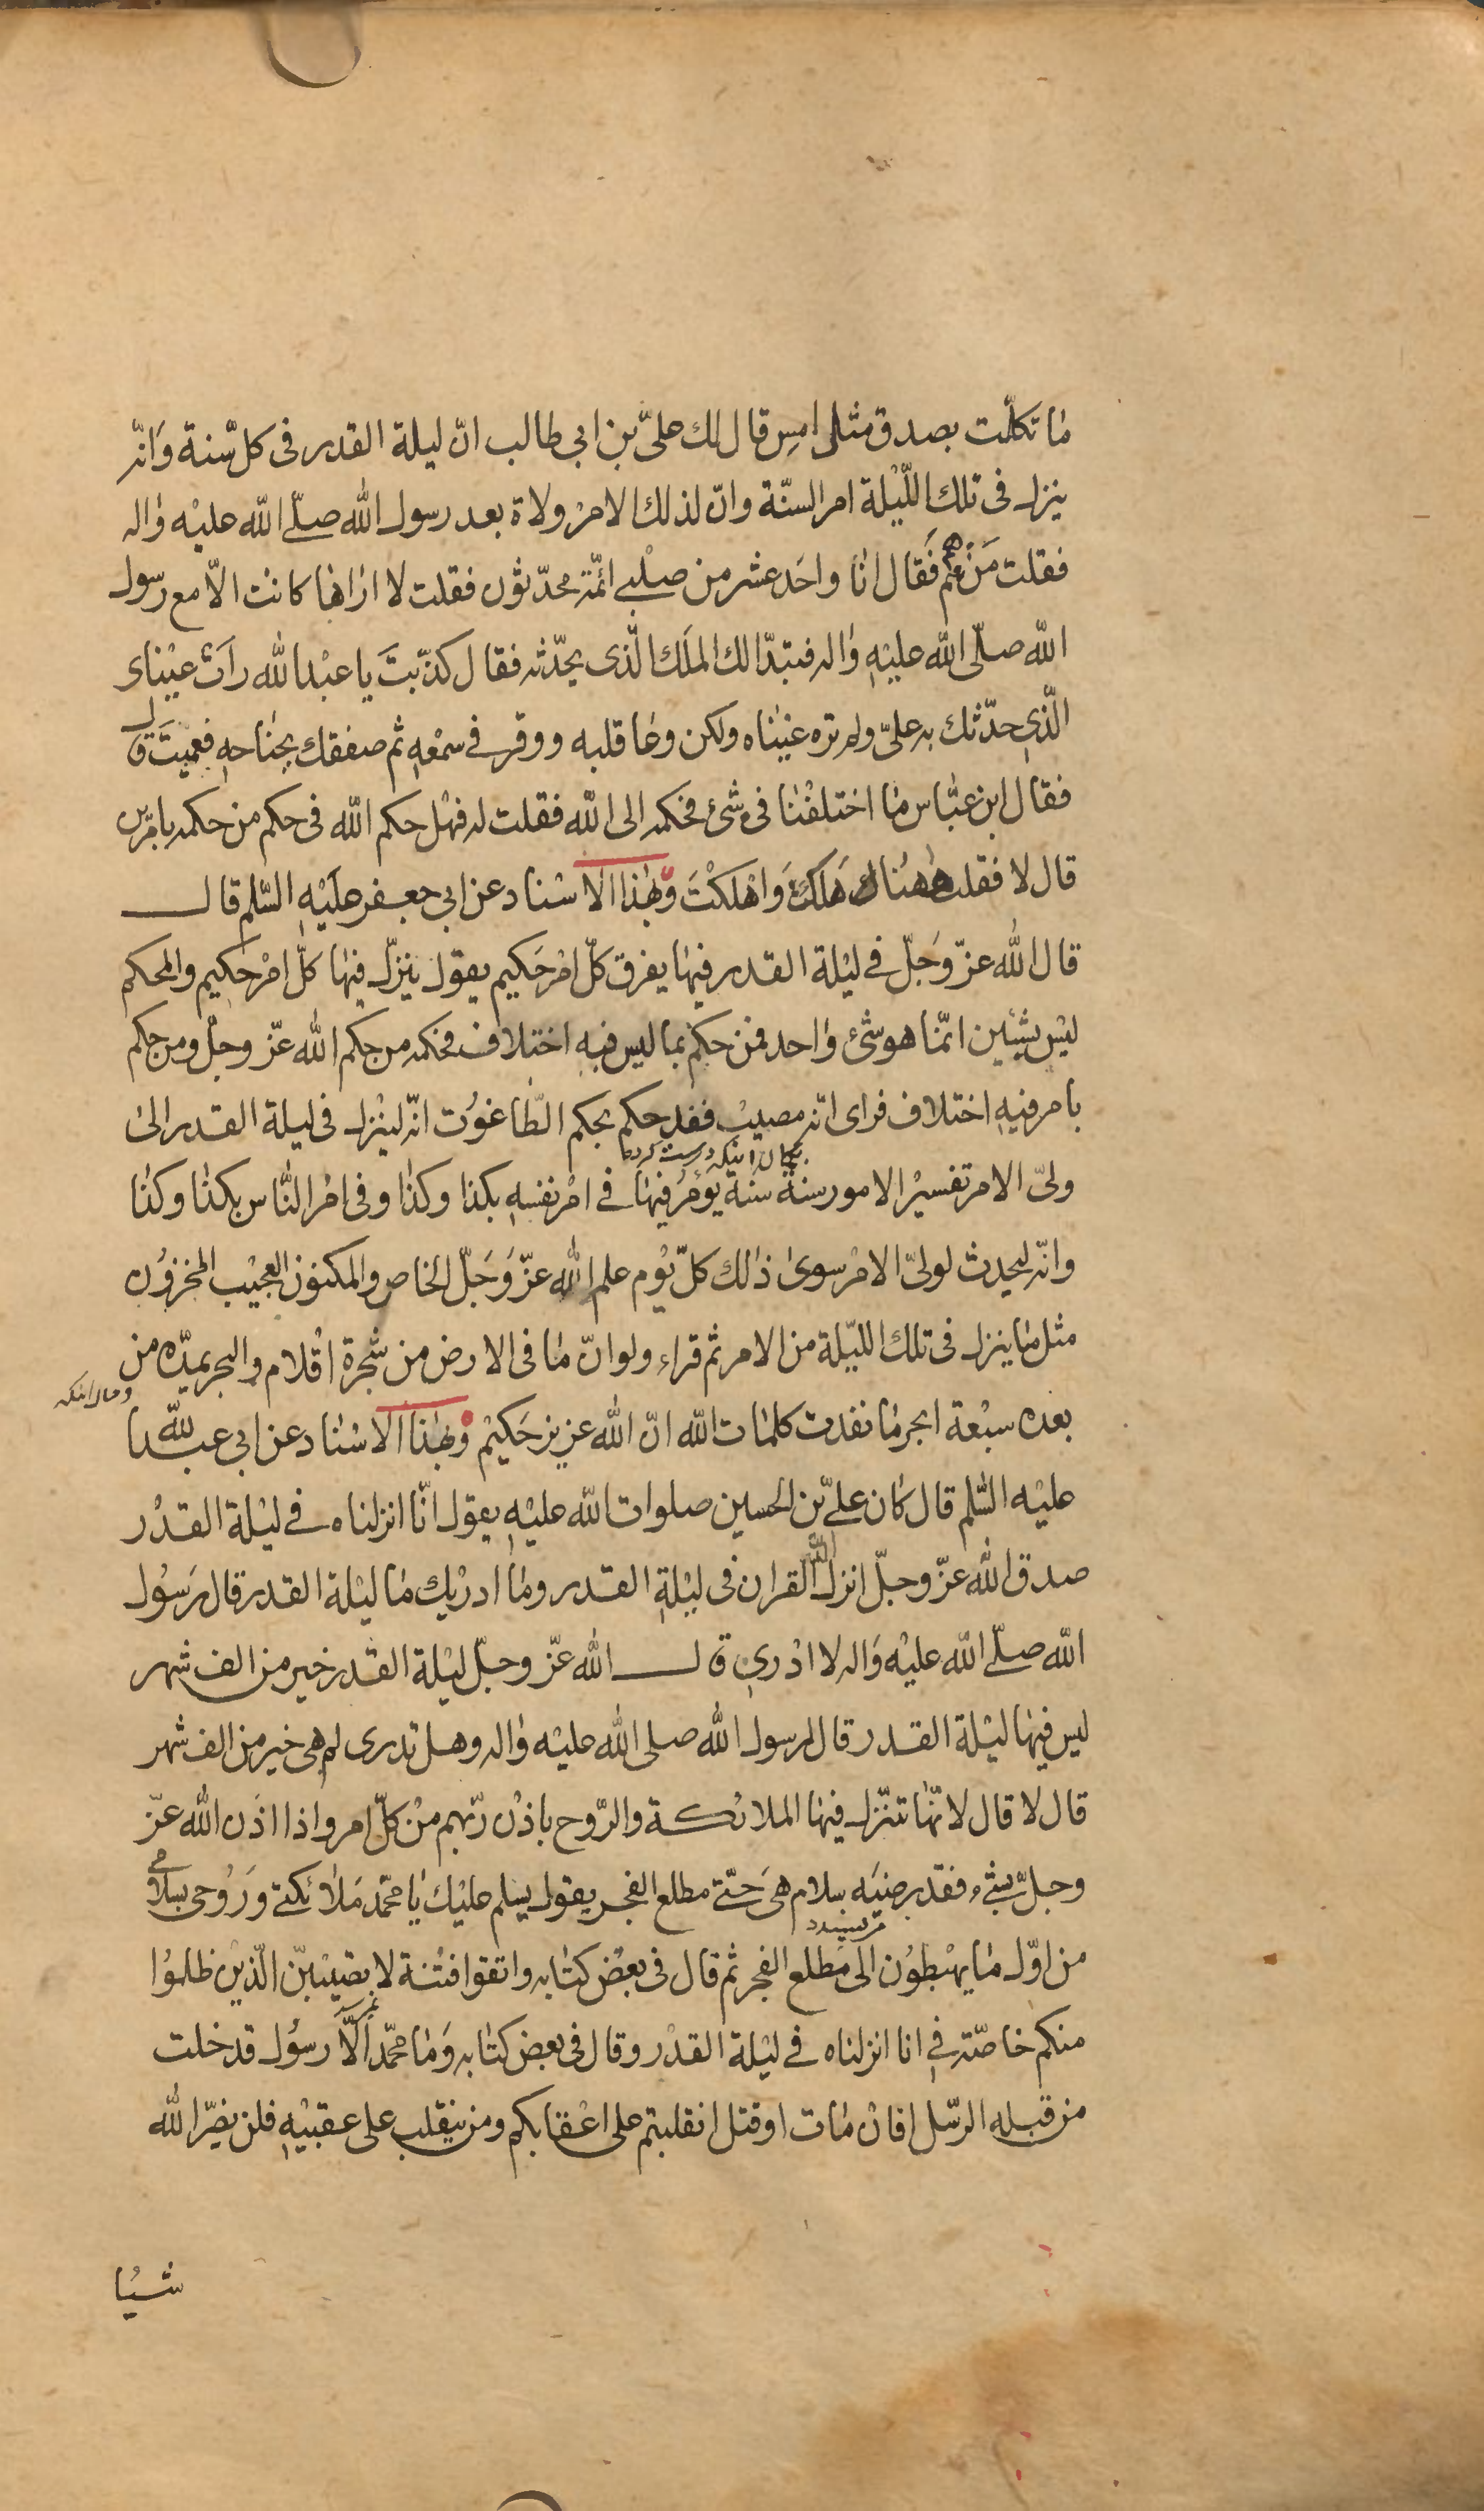 ما تكلّمت بصدق مثل امس قال لك علىّ بن ابي طالب انّ ليلة القدر فى كل سّنة وانّه
ينزل فى تلك اللّيلة امر السنّة وانّ لذلك الامر ولاة بعد رسول الله صلّى الله عليه واله
فقلت من هم فقال انا واحد عشر من صلبي ائمّة محدّثون فقلت لا اراها كانت الاّ مع رسول
الله صلّى الله عليه واله فتبدّا لك الملك الّذى يحدّثه فقال كذبت يا عبد الله رات عيناى
الّذي حدّثك به علىّ ولم تره عيناه ولكن وعا قلبه ووقر في سمعه ثم صفقك بجناحه فعميت قال
فقال ابن عبّاس ما اختلفنا فى شئ فحكمه الى الله فقلت له فهل حكم الله فى حكم من حكمه بامرين
قال لا فقلت ههناك هلكت واهلكت وبهذا الاسناد عن ابي جعفر عليه السّلم قال
قال الله عزّ وجلّ في ليلة القدر فيها يفرق كلّ امر حكيم يقول ينزّل فيها كلّ امر حكيم والمحكم
ليس بشيئين انّما هو شئ واحد فمن حكم بما ليس فيه اختلاف فحكمه من حكم الله عزّ وجلّ ومن حكم
بامر فيه اختلاف فراى انّه مصيب فقد حكم بحكم الطّاغوت انّه لينزل فى ليلة القدر الى
ولىّ الامر تفسير الامور سنة سنة يؤمر فيها في امر نفسه بكذا وكذا وفى امر النّاس بكذا وكذا
وانّه ليحدث لولىّ الامر سوى ذلك كلّ يوم علم الله عزّ وجلّ الخاص والمكنون العجيب المخزون
مثل ما ينزل فى تلك الليّلة من الامر ثم قراء ولو انّ ما فى الارض من شجرة اقلام والبحر يمدّه من
بعده سبعة ابحر ما نفدت كلمات الله انّ الله عزيز حكيم وبهذا الاسناد عن ابي عبد الله
عليه السّلم قال كان علىّ بن الحسين صلوات الله عليه يقول انّا انزلناه في ليلة القدر
صدق الله عزّ وجلّ انزل الله القران فى ليلة القدر وما ادريك ما ليلة القدر قال رسول
الله صلّى الله عليه واله لا ادري قال الله عزّ وجلّ ليلة القدر خير من الف شهر
ليس فيها ليلة القدر قال لرسول الله صلى الله عليه واله وهل تدرى لم هى خير من الف شهر
قال لا قال لانّها تنزّل فيها الملائكة والرّوح باذن ربّهم من كلّ امر واذا اذن الله عزّ
وجلّ بشئ فقد رضيه سلام هى حتّى مطلع الفجر يقول يسلم عليك يا محمّد ملائكتى وروحى بسلامي
من اوّل ما يهبطون الى مطلع الفجر ثم قال فى بعض كتابه واتقوا فتنة لا تصيبنّ الّذين ظلموا
منكم خاصّة في انا انزلناه في ليلة القدر وقال فى بعض كتابه وما محمّد الاّ رسول قد خلت
من قبله الرّسل افان مات او قتل انقلبتم على اعقابكم ومن ينقلب على عقبيه فلن يضرّ الله
شيئا